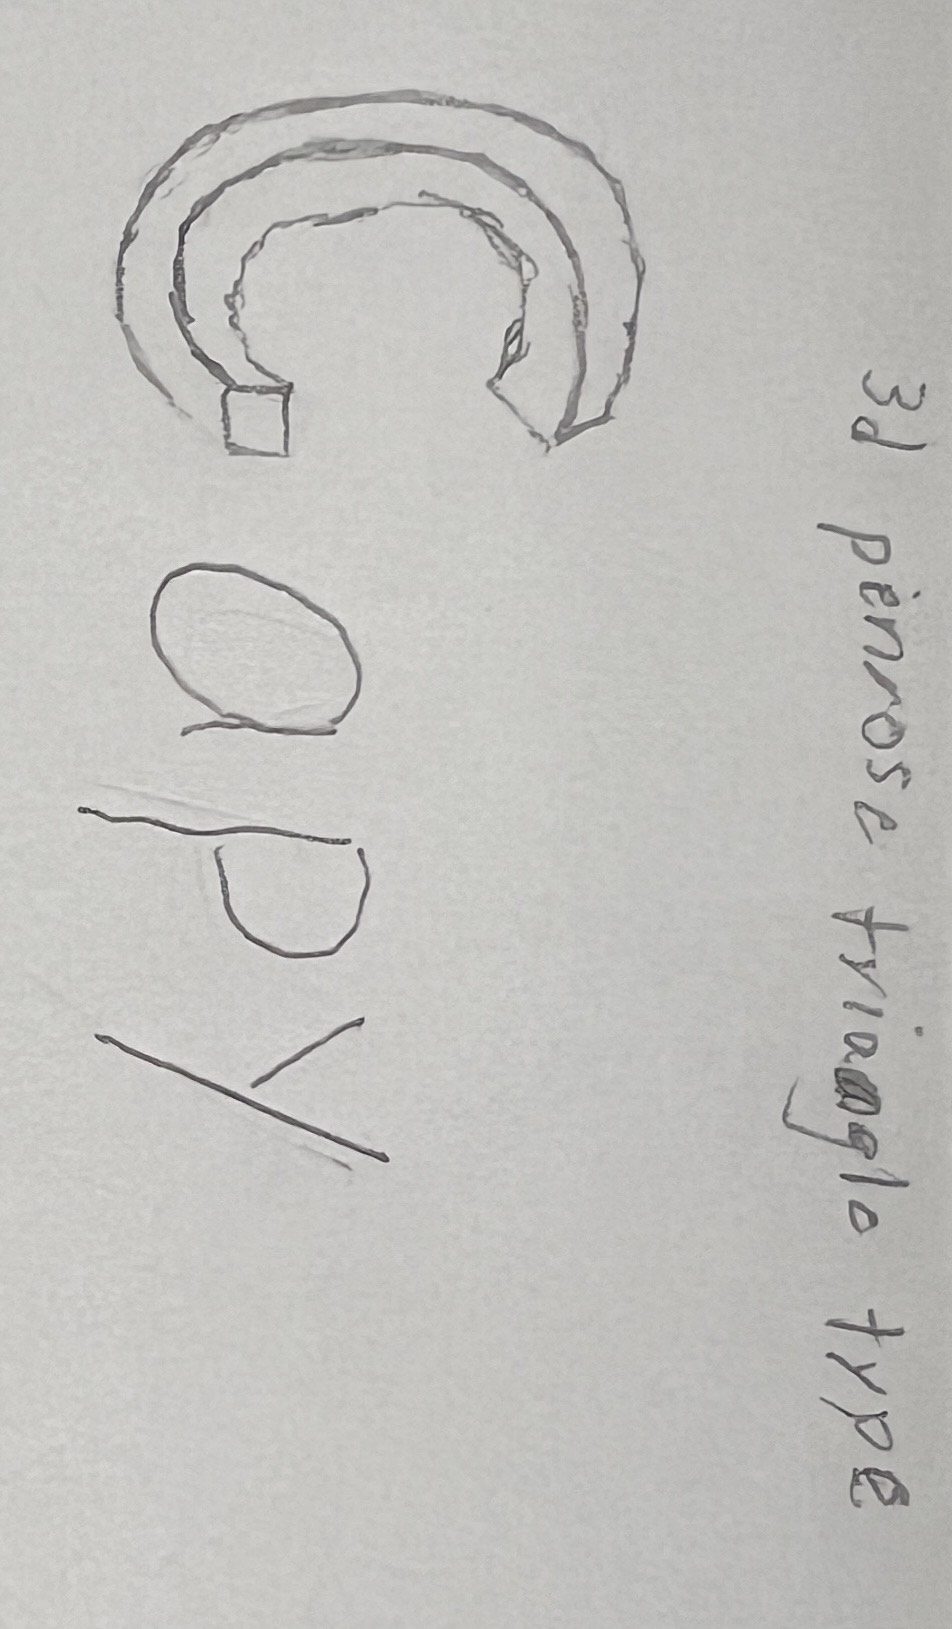 3d penrose triangle type
Capy